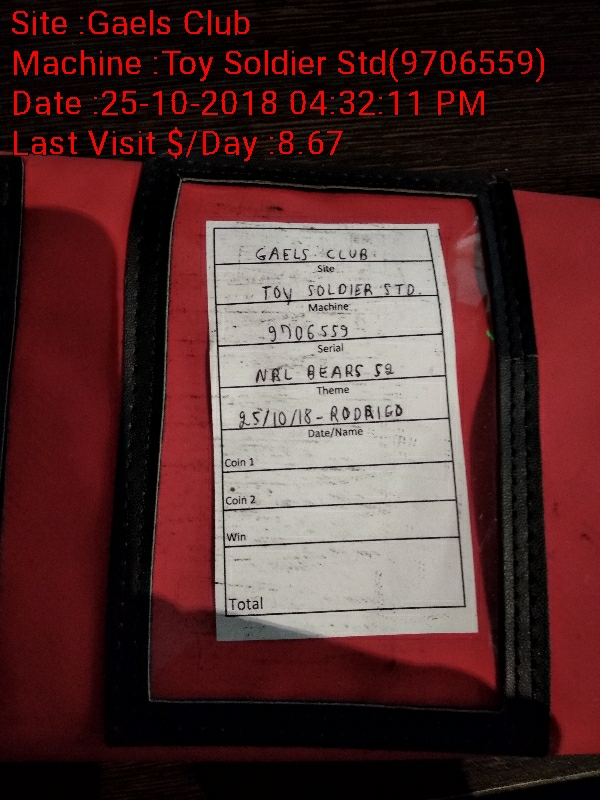 Site :Gaels Club
Machine :Toy Soldier Std(9706559)
Date :25-10-2018 04:32:11 PM
Last Visit $/Day :8.67
GAELS CLUB
Site
TOY SOLDIER STD.
Machine
9706559
Serial
NRL BEARS 52
Theme
25/10/18 - RODRIGO
Date/Name
Coin 1
Coin 2
Win
Total